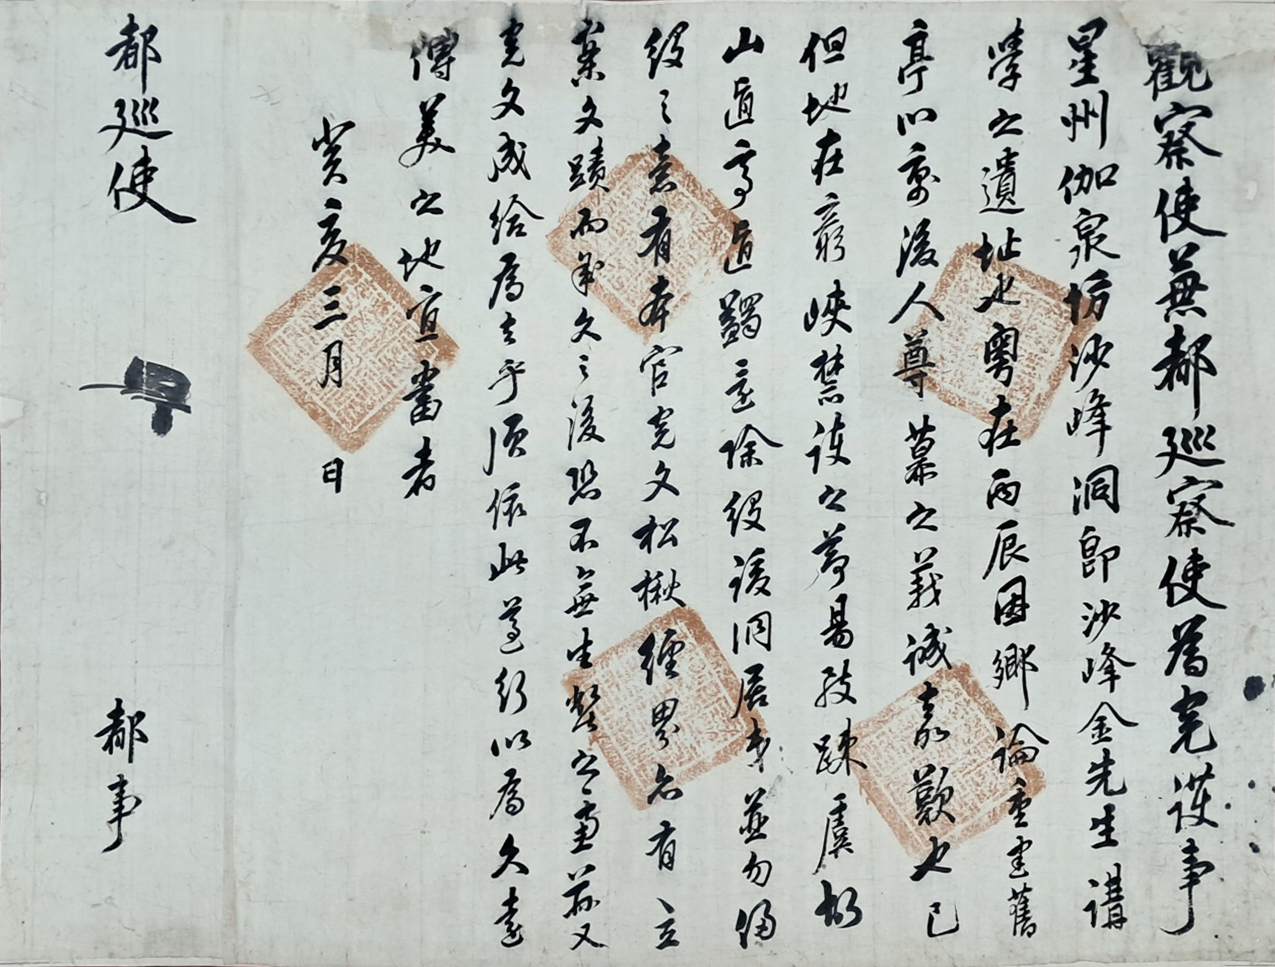 觀察使兼都巡察使爲完護事
星州伽泉坊沙峰洞卽沙峰金先生講
學之遺址也粤在丙辰因鄉論重建舊
亭以寓後人尊慕之義誠嘉歎也已
但地在窮峽禁護之節易致疎虞故
山直亭直蠲音除役該洞居民並勿侵
役之意有本官完文松楸經界亦有立
案文蹟而年久之後恐不無生弊之慮茲又
完文成給爲去乎須依此遵行以爲久遠
傳美之地宜當者
癸亥三月 日
都巡使 都事